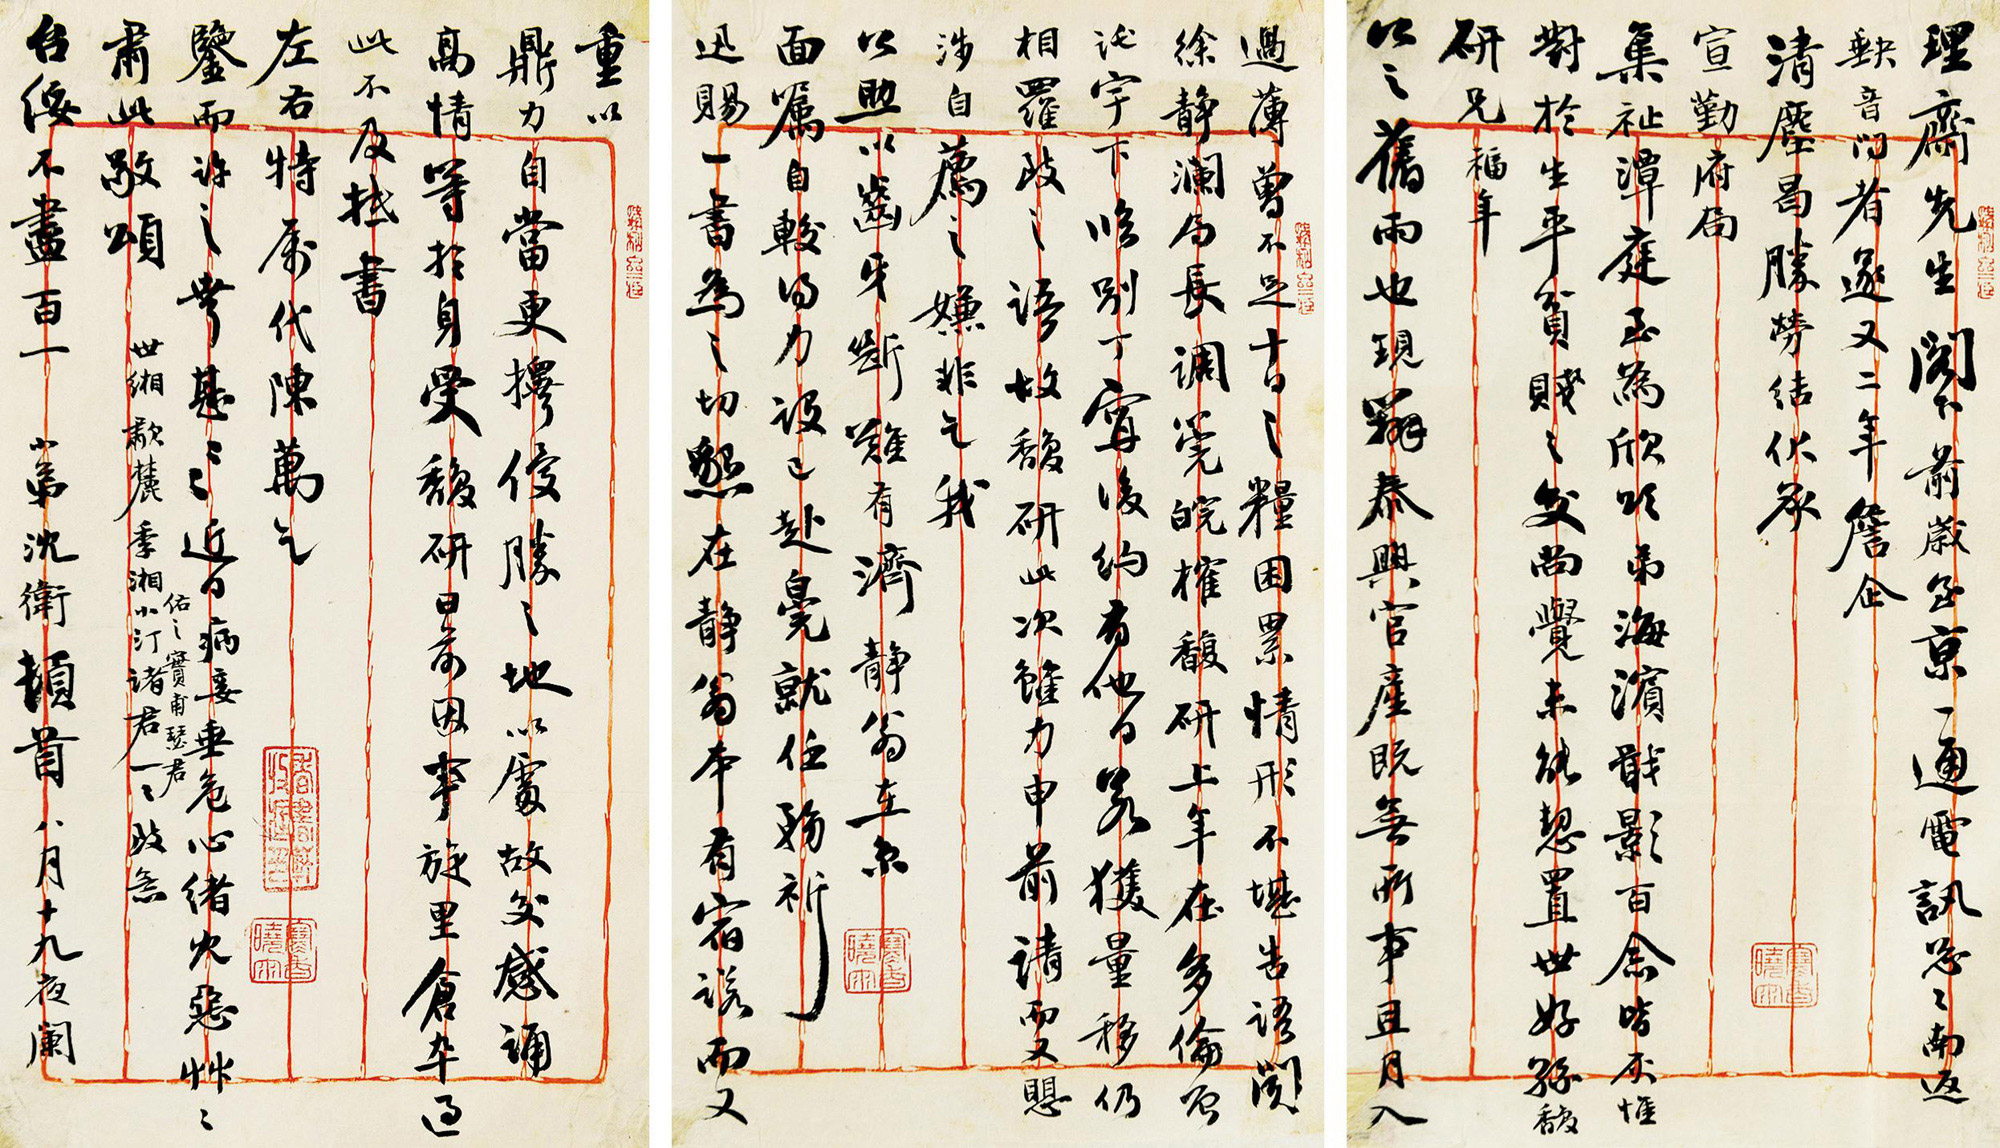 理齋先生閣下前歲出京一通電訊忽忽南返
缺音問者遂又二年詹企
清塵曷勝勞結伏承
宣勤府局
集祉潭庭至為欣頌弟海濱戢影百念皆灰惟
對於生平貧賤之交尚覺未能恝置世好孫馥
研兄福年
以之舊雨也現辦泰興官產既無所事且月入
過薄曾不足十日之糧困累情形不堪告語閱
徐靜瀾局長調筦皖榷馥研上年在多倫
託宇下臨別丁寧後約有他日若獲量移仍
相羅致之語故馥研此次雖力申前請而又懸
涉自薦之嫌非乞我
公照以齒牙斷難有濟靜翁在京
面囑自較得力設已赴皖就任務祈
迅賜一書為之切懇在靜翁本有宿諾而又
重以
鼎力自當更擇優勝之地以處故交感誦
高情等於身受馥研日前因事旋里倉卒過
此不及抵書
左右特屬代陳萬乞
鑒而許之幸甚幸甚近日病妻垂危心緒火惡艸艸
肅此敬頌
世緗 歗麓 季湘 小汀諸君一一致念
佑之 寶甫 瑟君
台綏不盡百一 小弟沈衛頓首 八月十九夜闌